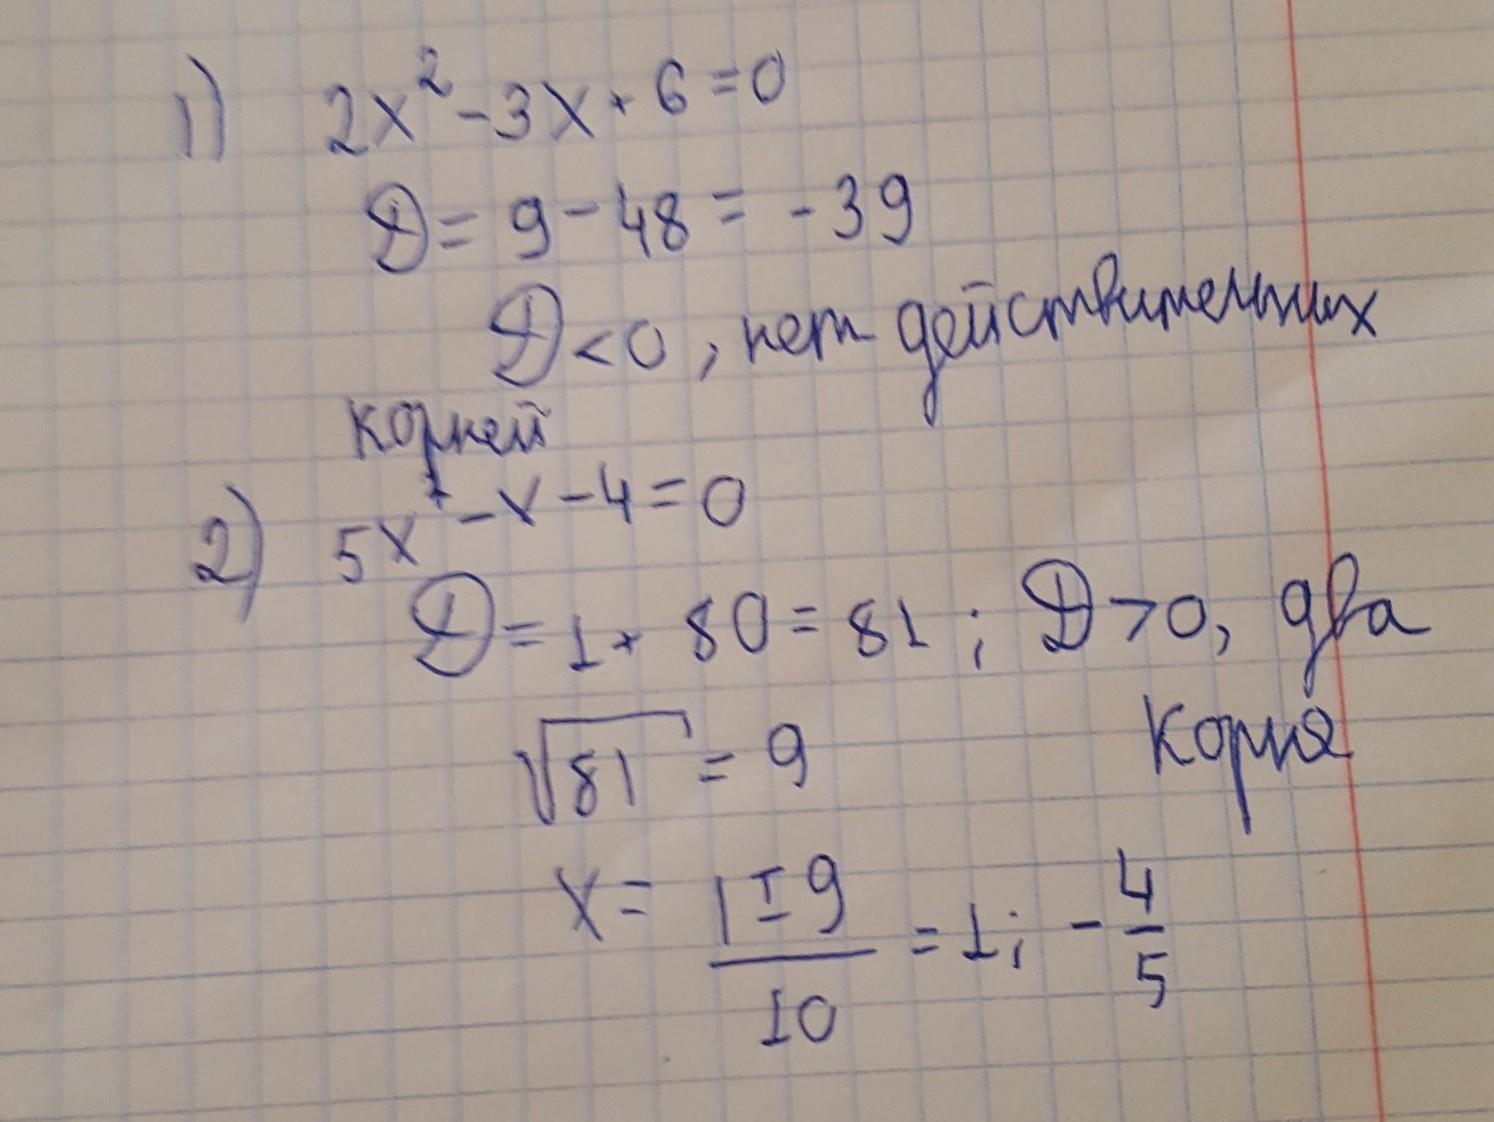 1) 2x² - 3x + 6 = 0
D = 9 - 48 = -39
D < 0, нет действительных
корней
2) 5x² - x - 4 = 0
D = 1 + 80 = 81 ; D > 0, два
корня
√81 = 9
x = (1 ± 9)/10 = 1; -4/5